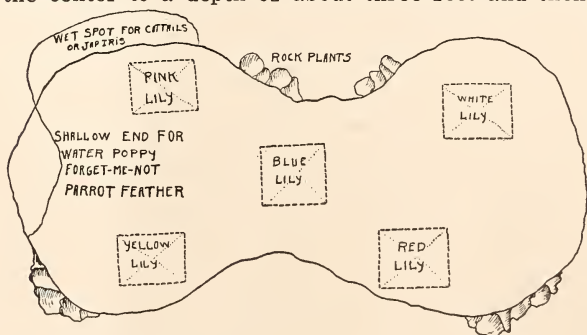 the center to a depth of about three feet and then
WET SPOT FOR CATTAILS
OR JAP IRIS
ROCK PLANTS
PINK
LILY
WHITE
LILY
SHALLOW END FOR
WATER POPPY
FORGET-ME-NOT
PARROT FEATHER
BLUE
LILY
YELLOW
LILY
RED
LILY